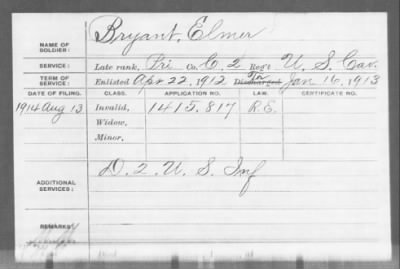 Bryant, Elmer
NAME OF SOLDIER:
SERVICE: Late rank, Pri Co. C, 2 Reg't U. S. Cav.
TERM OF SERVICE: Enlisted Apr 22, 1912 Discharged Jan 16, 1913
DATE OF FILING. CLASS. APPLICATION NO. LAW. CERTIFICATE NO.
1914 Aug 13 Invalid, 1415.817 R.E.
Widow,
Minor,
ADDITIONAL SERVICES: D. 2. U. S. Inf
REMARKS: